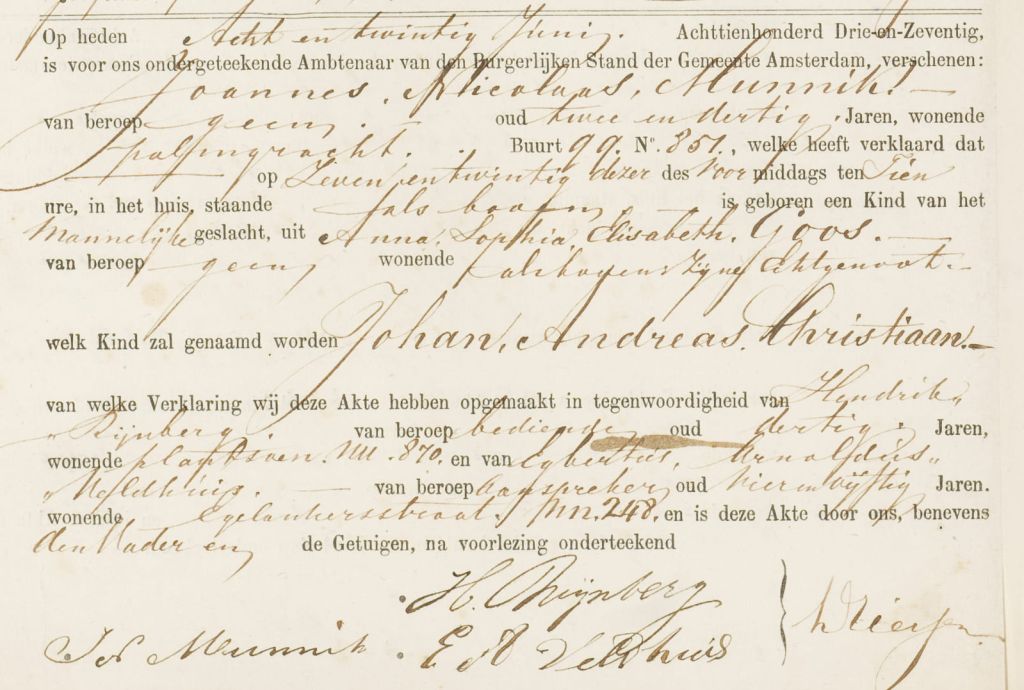 Op heden Acht en twintig Juni. Achttienhonderd Drie-en-Zeventig,
is voor ons ondergeteekende Ambtenaar van den Burgerlijken Stand der Gemeente Amsterdam, verschenen:
Joannes, Nicolaas, Munnik.
van beroep geen, oud twee en dertig. Jaren, wonende
palmgracht. Buurt QQ. N° 851., welke heeft verklaard dat
op Zeven en twintig dezer des Voor middags ten Tien
ure, in het huis, staande als boven, is geboren een Kind van het
Mannelijke geslacht, uit Anna, Sophia, Elisabeth, Goos.
van beroep geen, wonende als boven, zijne Echtgenoot.
welk Kind zal genaamd worden Johan, Andreas, Christiaan.
van welke Verklaring wij deze Akte hebben opgemaakt in tegenwoordigheid van Hendrik,
Rijnberg. van beroep bediende, oud dertig. Jaren,
wonende UU. 870. en van Egbertus, Arnoldus,
Veldhuis. van beroep Aanspreker, oud Vier en vijftig Jaren.
wonende Egelantiersstraat. NN. 248. en is deze Akte door ons, benevens
den Vader en, de Getuigen, na voorlezing onderteekend
H. Rhijnberg
Jos Munnik. E A Veldhuis